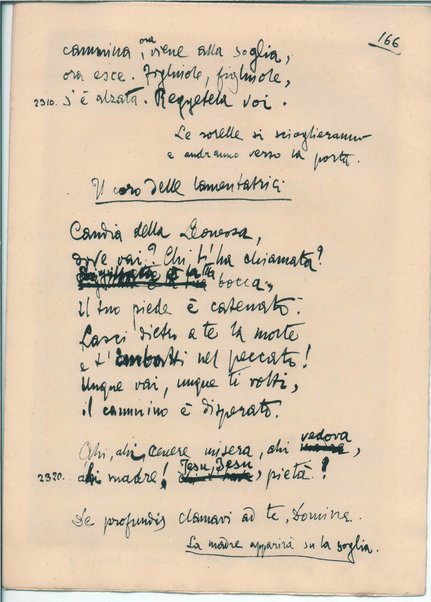 166
cammina, ora viene alla soglia,
ora esce. Figliuole, figliuole,
2310. s'è alzata. Reggetela voi.
Le sorelle si scioglieranno
e andranno verso la porta.
Il coro delle lamentatrici
Candia della Leonessa,
dove vai? Chi ti ha chiamata?
Sigillata è la tua bocca,
il tuo piede è catenato.
Lasci dietro a te la morte
e t'imbatti nel peccato!
Unque vai, unque ti volti,
il cammino è disperato.
Ahi, ahi, cenere misera, ahi vedova,
2320. ahi madre! Jesu, Jesu, pietà!
De profundis clamavi ad te, Domine.
La madre apparirà su la soglia.